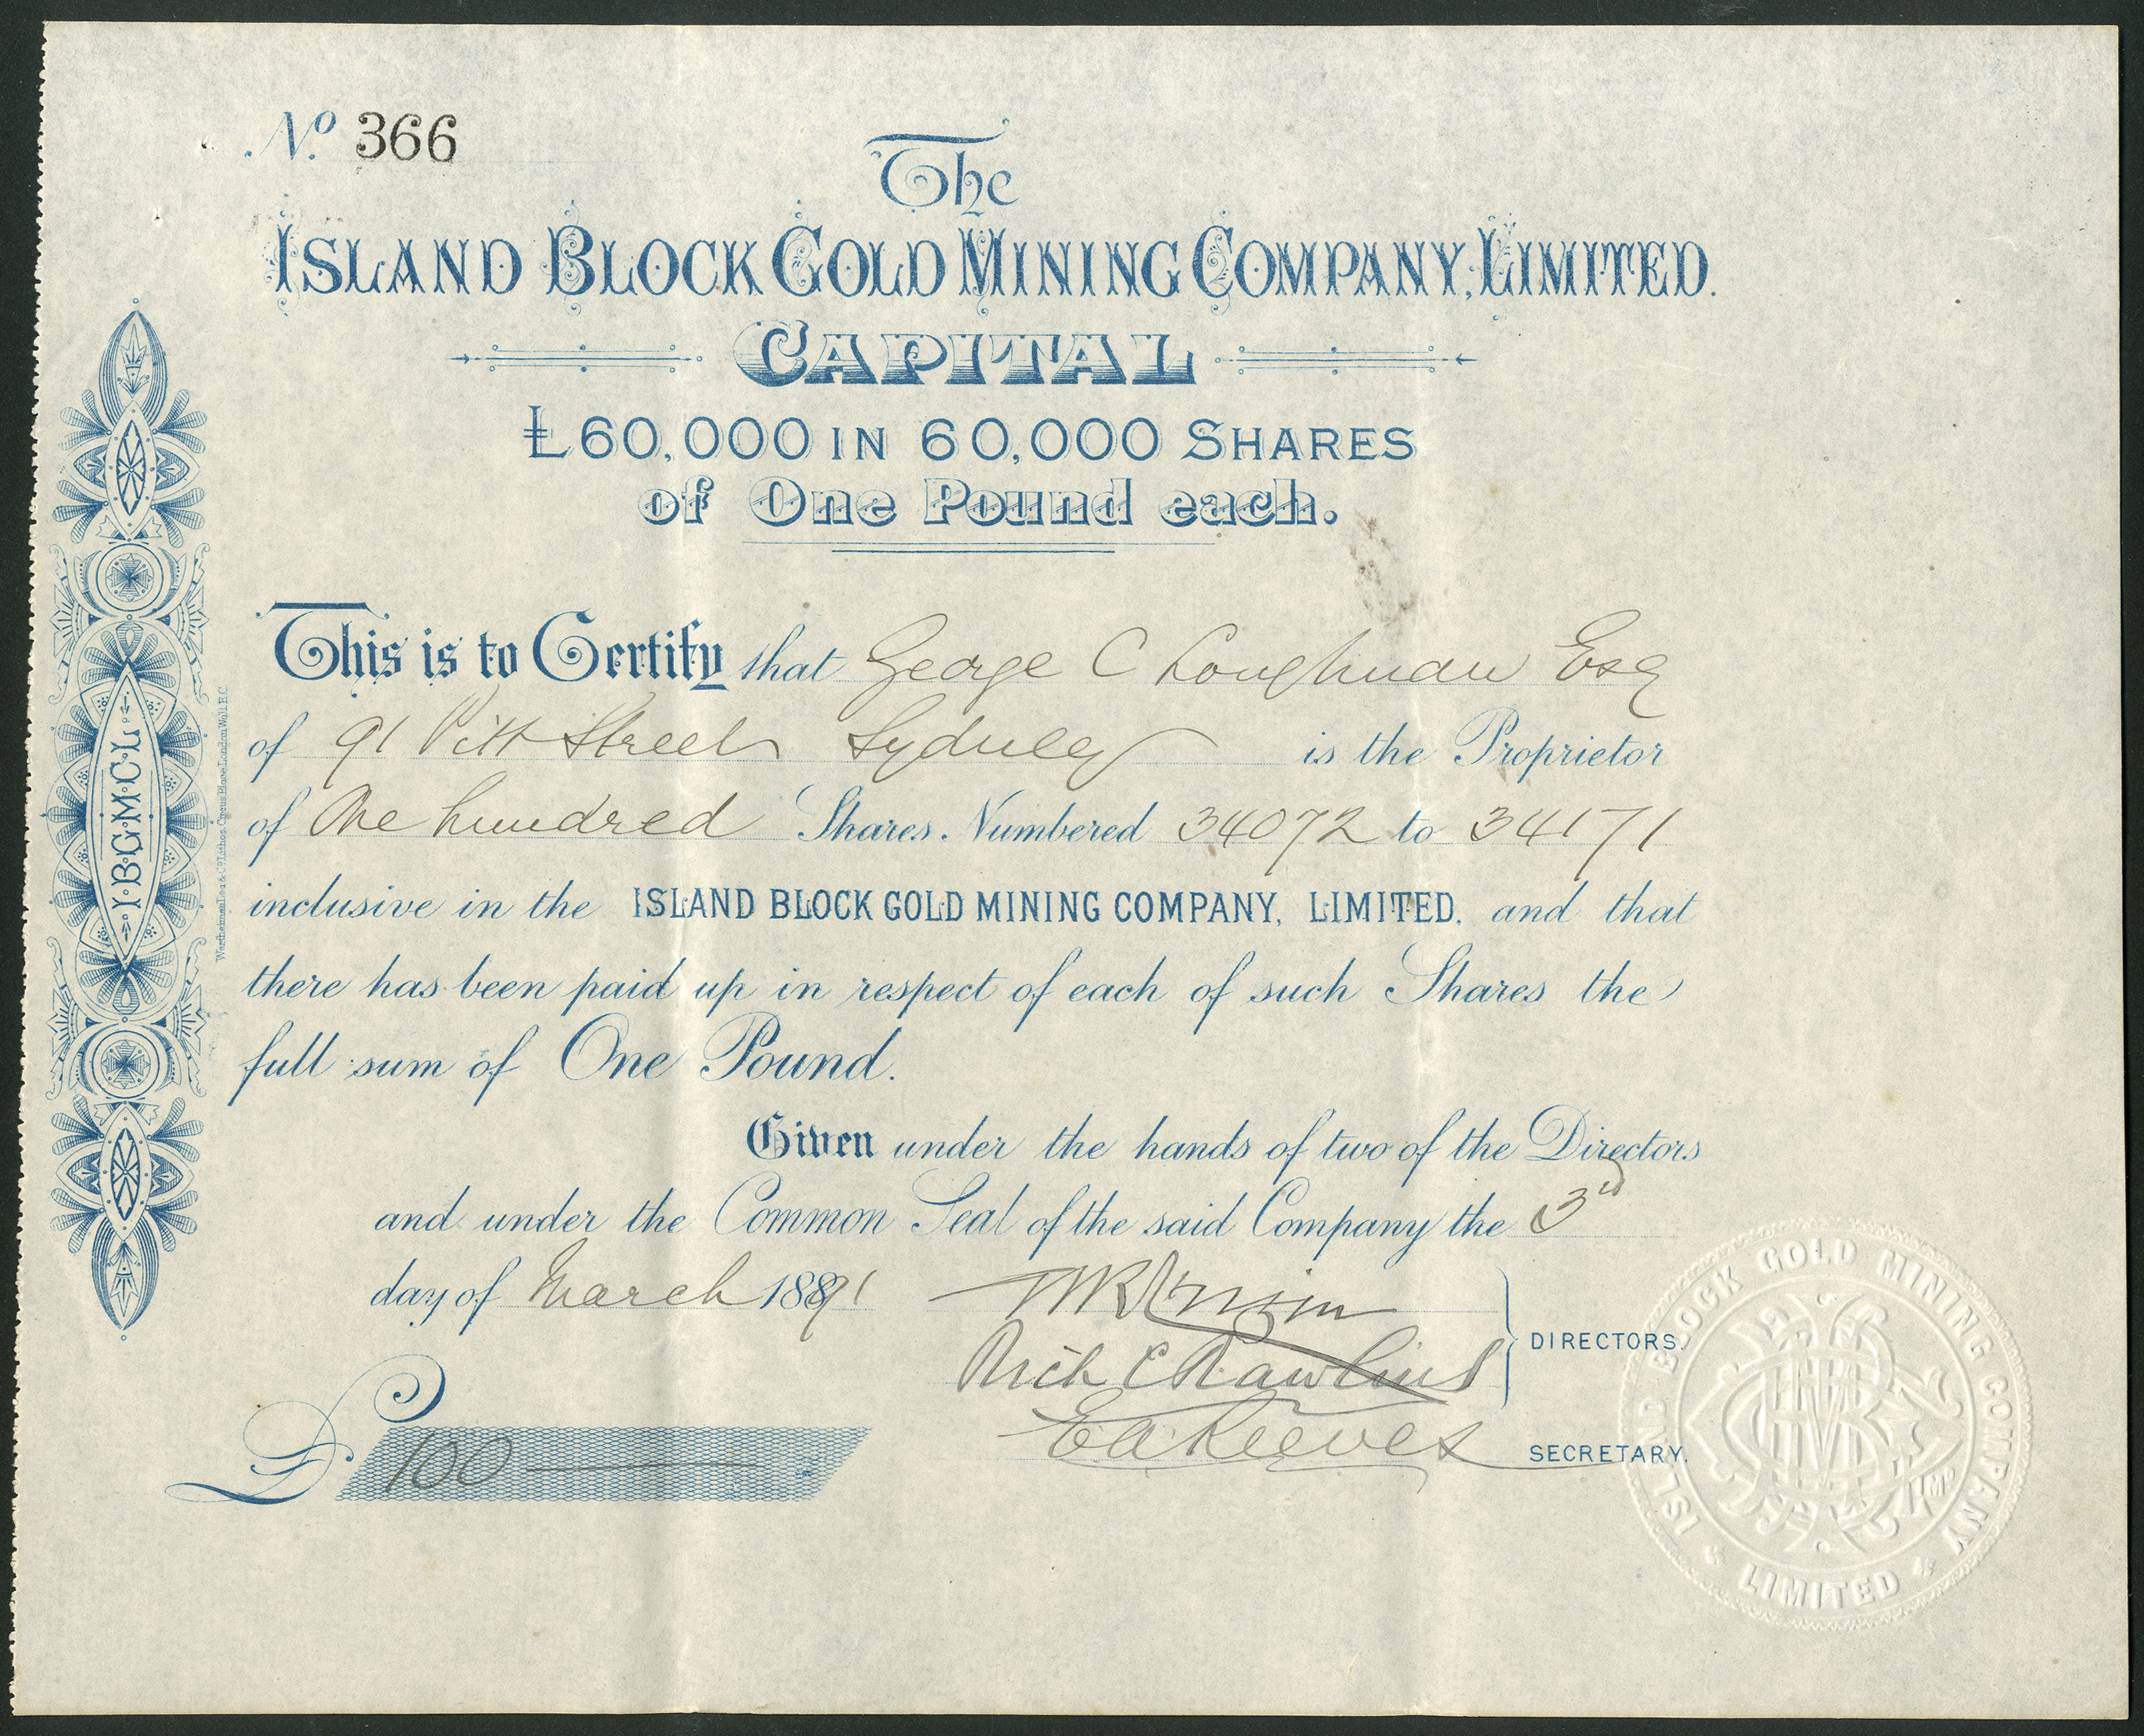 No. 366
The
ISLAND BLOCK GOLD MINING COMPANY, LIMITED.
CAPITAL
£60,000 IN 60,000 SHARES
of One Pound each.
This is to Certify that George C Loughnan Esq
of 91 Pitt Street Sydney is the Proprietor
of One hundred Shares. Numbered 34072 to 34171
inclusive in the ISLAND BLOCK GOLD MINING COMPANY, LIMITED, and that
there has been paid up in respect of each of such Shares the
full sum of One Pound.
Given under the hands of two of the Directors
and under the Common Seal of the said Company the 3rd
day of March 1891
Rich C Rawlins
DIRECTORS.
E A Reeves SECRETARY.
£ 100
I.B.G.M.C.L.
Wertheimer, Lea & Co. Lithos. Circus Place, London Wall E.C.
ISLAND BLOCK GOLD MINING COMPANY
LIMITED